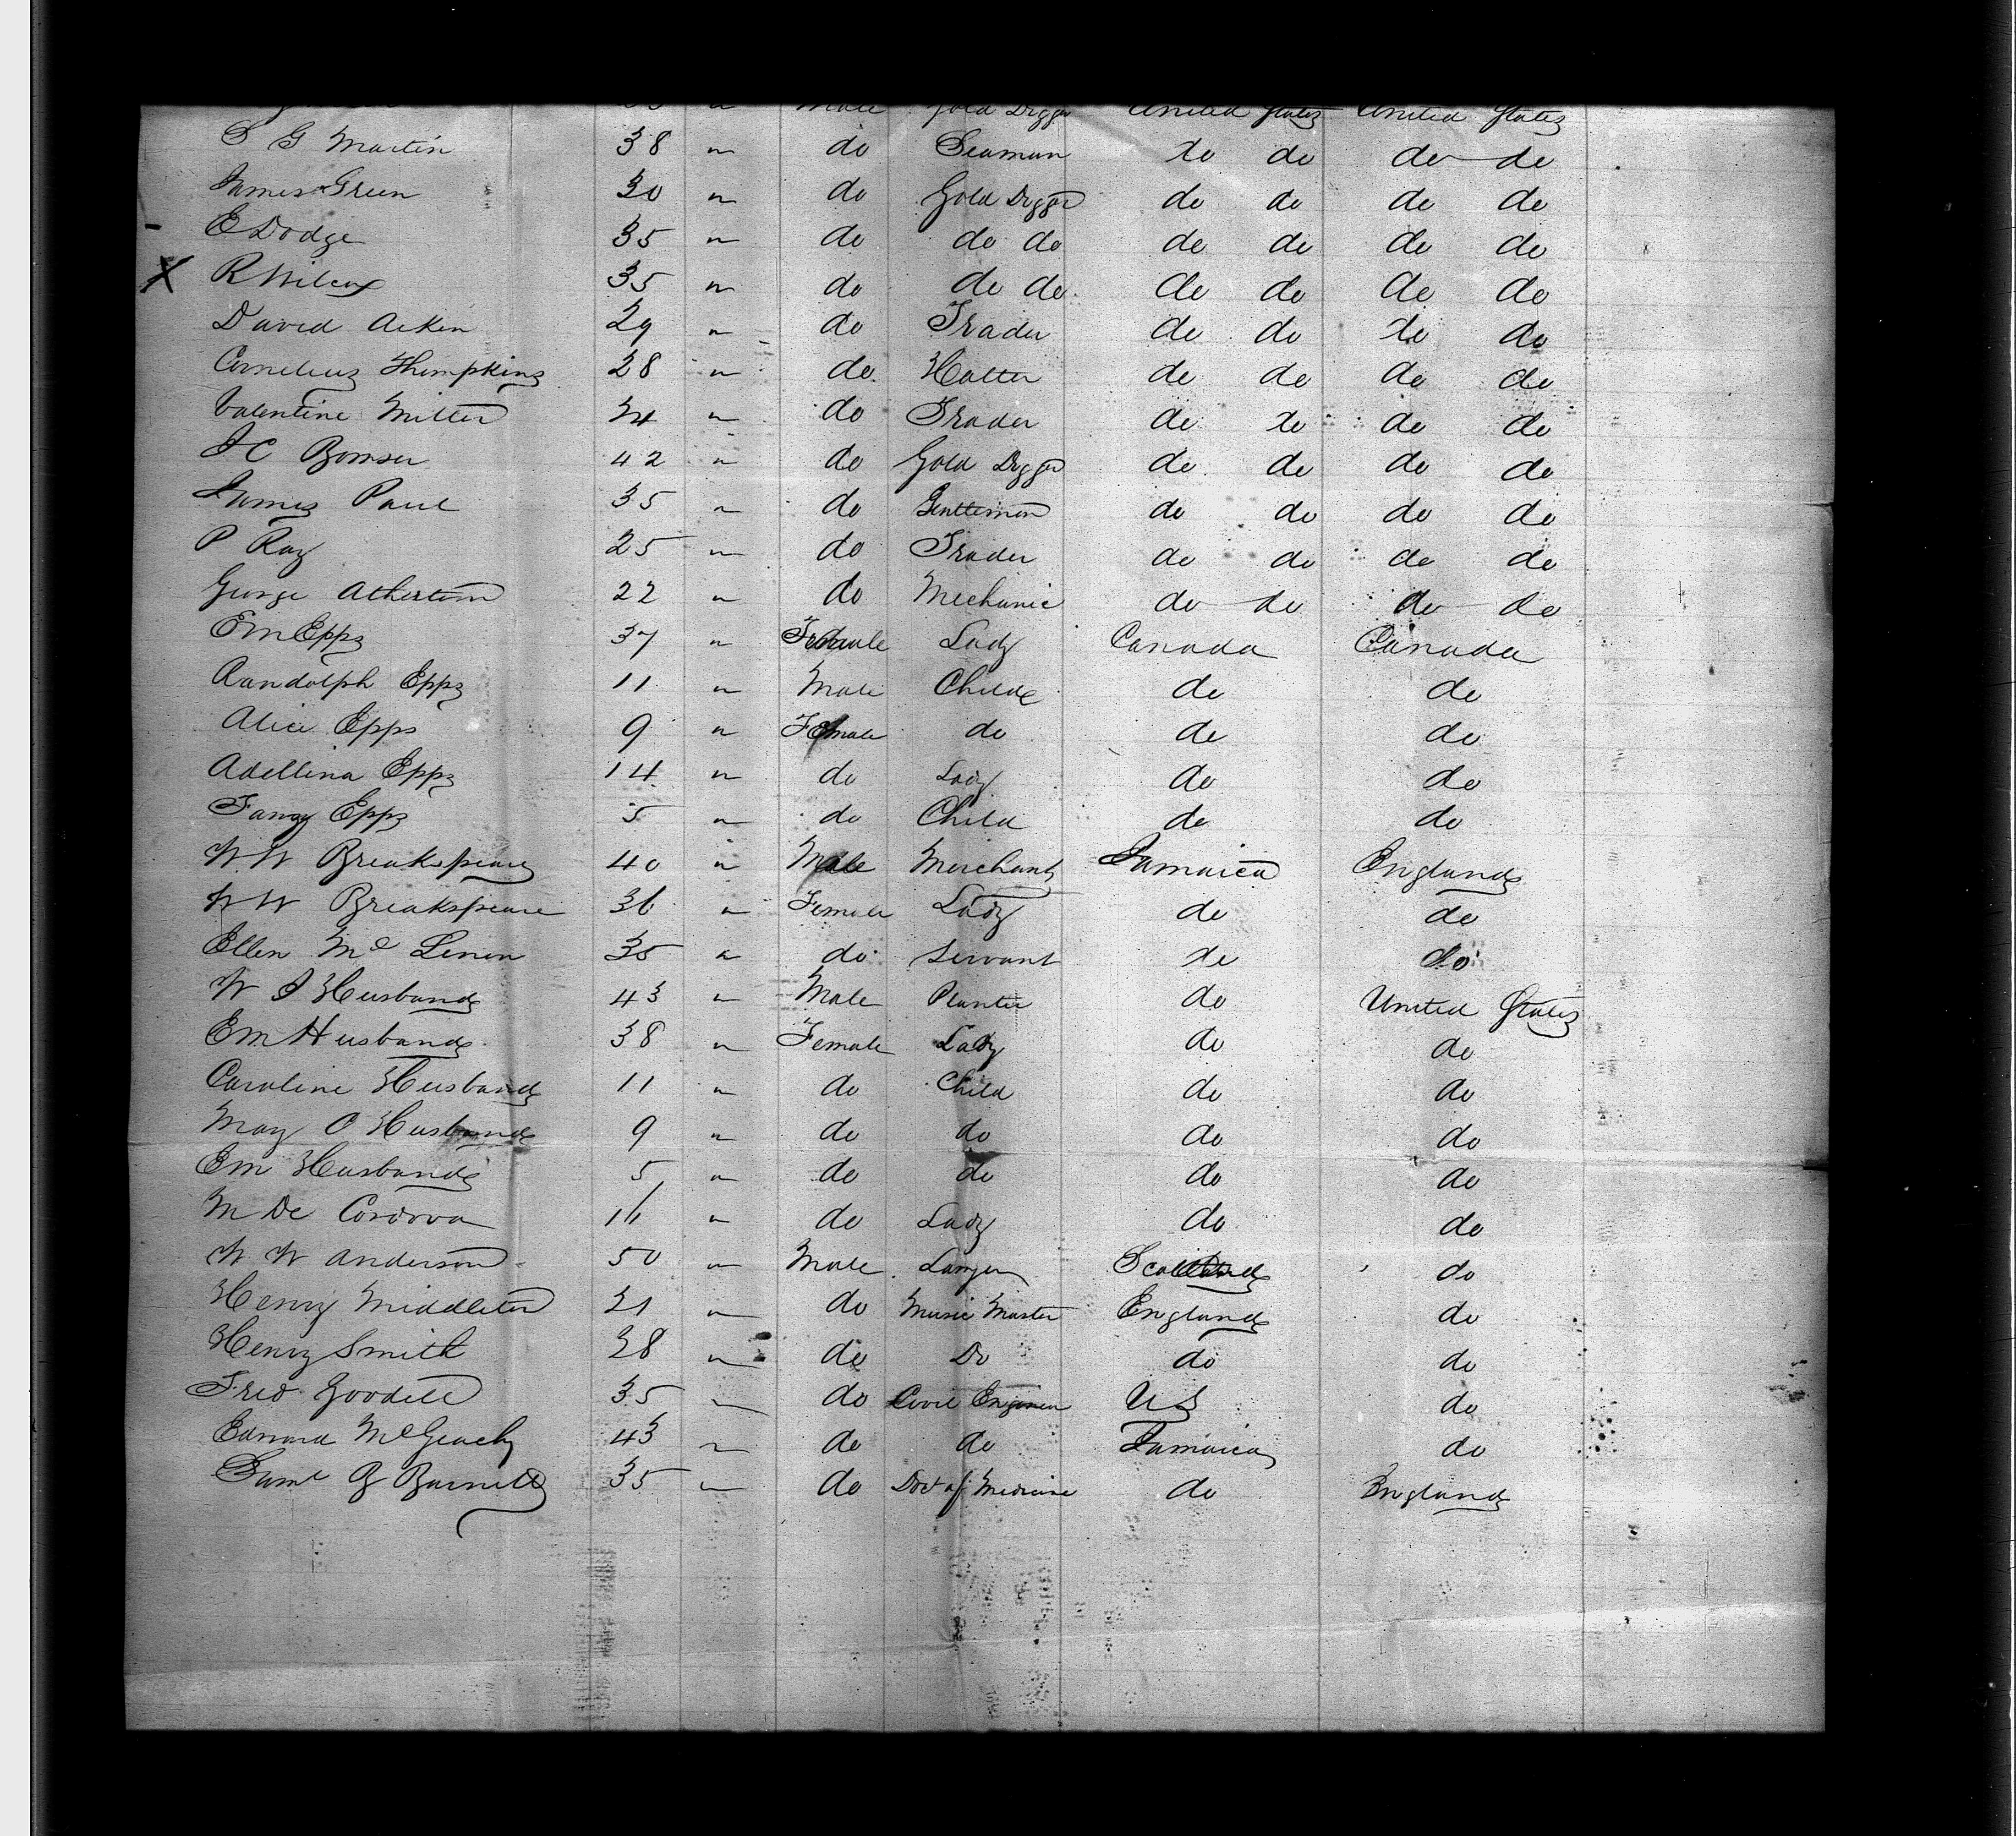 Male Gold Digger United States United States
S G Martin 38 " do Seaman do do do do
James Green 30 " do Gold Digger do do do do
E Dodge 35 " do do do do do do do
X R Wilcox 35 " do do do do do do do
David Aiken 29 " do Trader do do do do
Cornelius Thompkins 28 " do Hatter do do do do
Valentine Miller 24 " do Trader do do do do
J C Bomser 42 " do Gold Digger do do do do
James Paul 35 " do Gentleman do do do do
P Ray 25 " do Trader do do do do
George Atherton 22 " do Mechanic do do do do
E M Epps 37 " Female Lady Canada Canada
Randolph Epps 11 " Male Child do do
Alice Epps 9 " Female do do do
Adellina Epps 14 " do Lady do do
Fanny Epps 5 " do Child do do
W W Breakspeare 40 " Male Merchant Jamaica England
W W Breakspeare 36 " Female Lady do do
Ellen Mc Lenon 35 " do Servant do do
W J Husband 43 " Male Planter do United States
E M Husband 38 " Female Lady do do
Caroline Husband 11 " do Child do do
May O Husband 9 " do do do do
E M Husband 5 " do do do do
M De Cordova 16 " do Lady do do
W W Anderson 50 " Male Lawyer Scotland do
Henry Middleton 21 " do Music Master England do
Henry Smith 28 " do Do do do
Fred Goodell 35 " do Civil Engineer U S do
Edward McGeachy 43 " do do Jamaica do
Saml B Burnett 35 " do Doct of Medicine do England